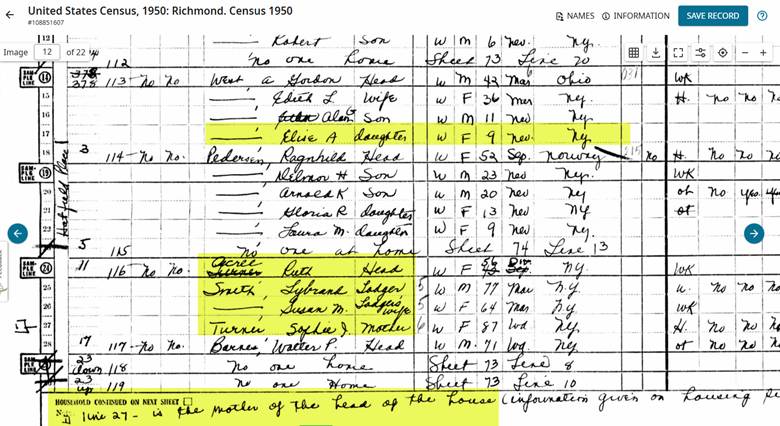 United States Census, 1950: Richmond. Census 1950
#108851607
NAMES INFORMATION SAVE RECORD
Image 12 of 22
12 Robert Son W M 6 nev. Ny.
112 no one home Sheet 73 Line 20
SAMPLE LINE 14 378 113 - no no West A Gordon Head W M 42 Mar Ohio WK
15 Edith L wife W F 36 Mar Ny. H. no no
16 Alan G Son W M 11 nev Ny.
17 Elise A daughter W F 9 nev. Ny.
18 3 114 - no no. Pedersen, Ragnhild Head W F 52 Sep. norway no H. no no
SAMPLE LINE 19 Son W M 23 nev Ny. WK
20 Arnold K Son W M 20 nev Ny ot no yes.
21 Gloria R daughter W F 13 nev Ny ot
22 Laura M. daughter W F 9 nev. Ny
Hatfield Place
5 115 no one at home Sheet 74 Line 13
SAMPLE LINE 24 11 116 - no no. Acree Turner Ruth Head W F 56 Div Sep. NY WK
25 Smith, Sybrand Lodger 5 W M 77 Mar N.Y. u. no no
26 Susan M. Lodger's wife 5 W F 64 Mar Ny. WK
27 Turner Sophie J. Mother 6 W F 87 Wd Ny. H. no no
28 17 117 - no no. Barnes, Walter P. Head W M. 71 Wd. Ny. ot no no
SAMPLE LINE 23 down 118 no one home Sheet 73 Line 8
23 up 119 no one Home Sheet 73 Line 10
HOUSEHOLD CONTINUED ON NEXT SHEET
line 27 - is the mother of the head of the house (information given on housing